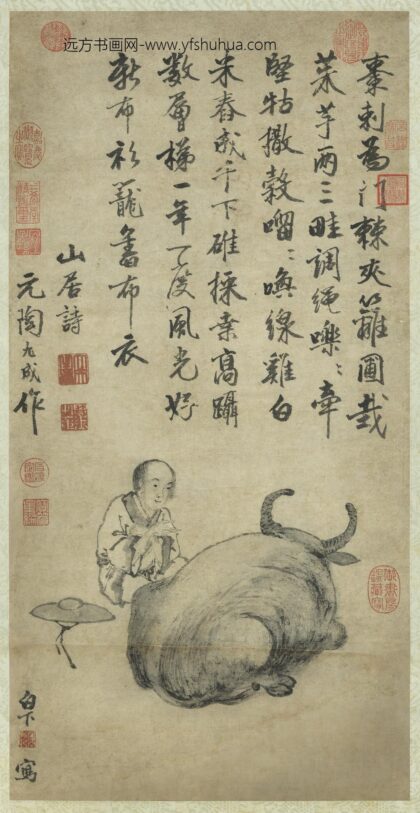 远方书画网-www.yfshuhua.com
棗刺為門棘夾籬圃栽
菜芋兩三畦調繩嚛〻牽
堅牯撒穀〻喚線雞白
米舂成千下碓採桑高躡
數層梯一年一度風光好
新布衫籠舊布衣
山居詩
元陶九成作
白下
寫